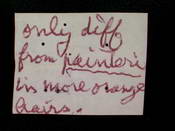 only diff
from painteri
is more orange
hairs.